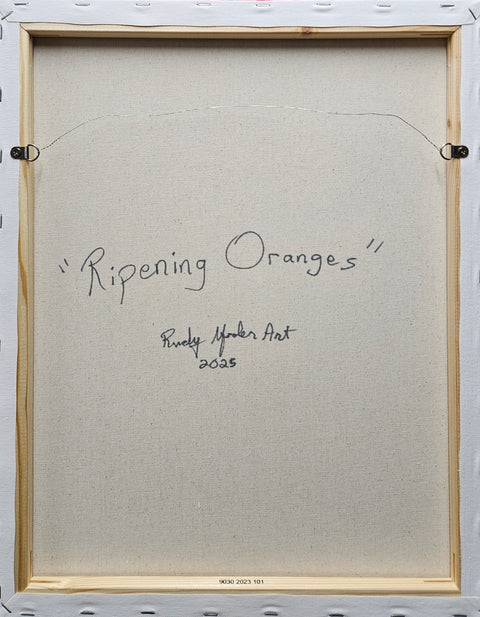 "Ripening Oranges"
Rudy Yoder Art
2025
9030 2023 101